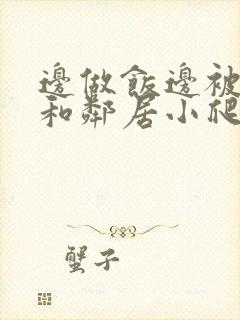 邊做飯邊被
和鄰居小爬
蟹子